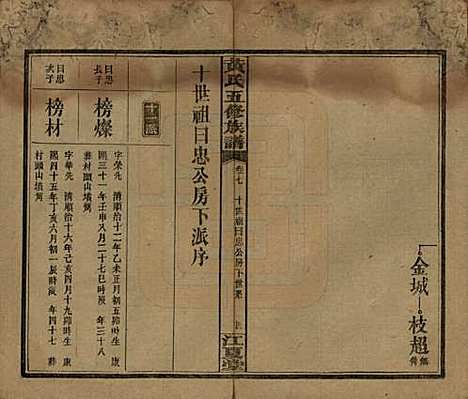 金城
枝超
黃氏五修族譜
卷七
十世祖日忠公房下世系
江夏堂
十世祖日忠公房下派序
十一派
日忠長子
榜燦
字榮先 清順治十二年乙未正月初五卯時生 康
熙三十一年壬申八月二十七巳時歿 年三十八
葬村頭山墳
日忠次子
榜材
字華先 清順治十六年己亥四月十九卯時生 康
熙四十五年丁亥六月初一辰時歿 年四十七 葬
村頭山墳